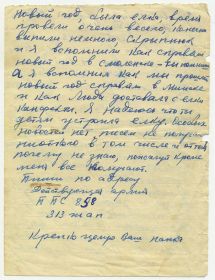 Новый год, была елка, время
провели очень весело, конечно
выпили немного, Скрипников
и я вспомнили как справляли
новый год в Смоленске - вы помните
а я вспомнил как мы прошлый
новый год справляли в Минске
и как Люда доставала с елки
конфетки. Я надеюсь что и
детям устроила елку.
новостей нет, писем не получаю
ни от кого в том числе и от тебя
почему не знаю, пожалуй кроме
меня все получают.
Пиши по адресу
Действующая армия
ППС 898
313 жап
Крепко целую Ваш папка